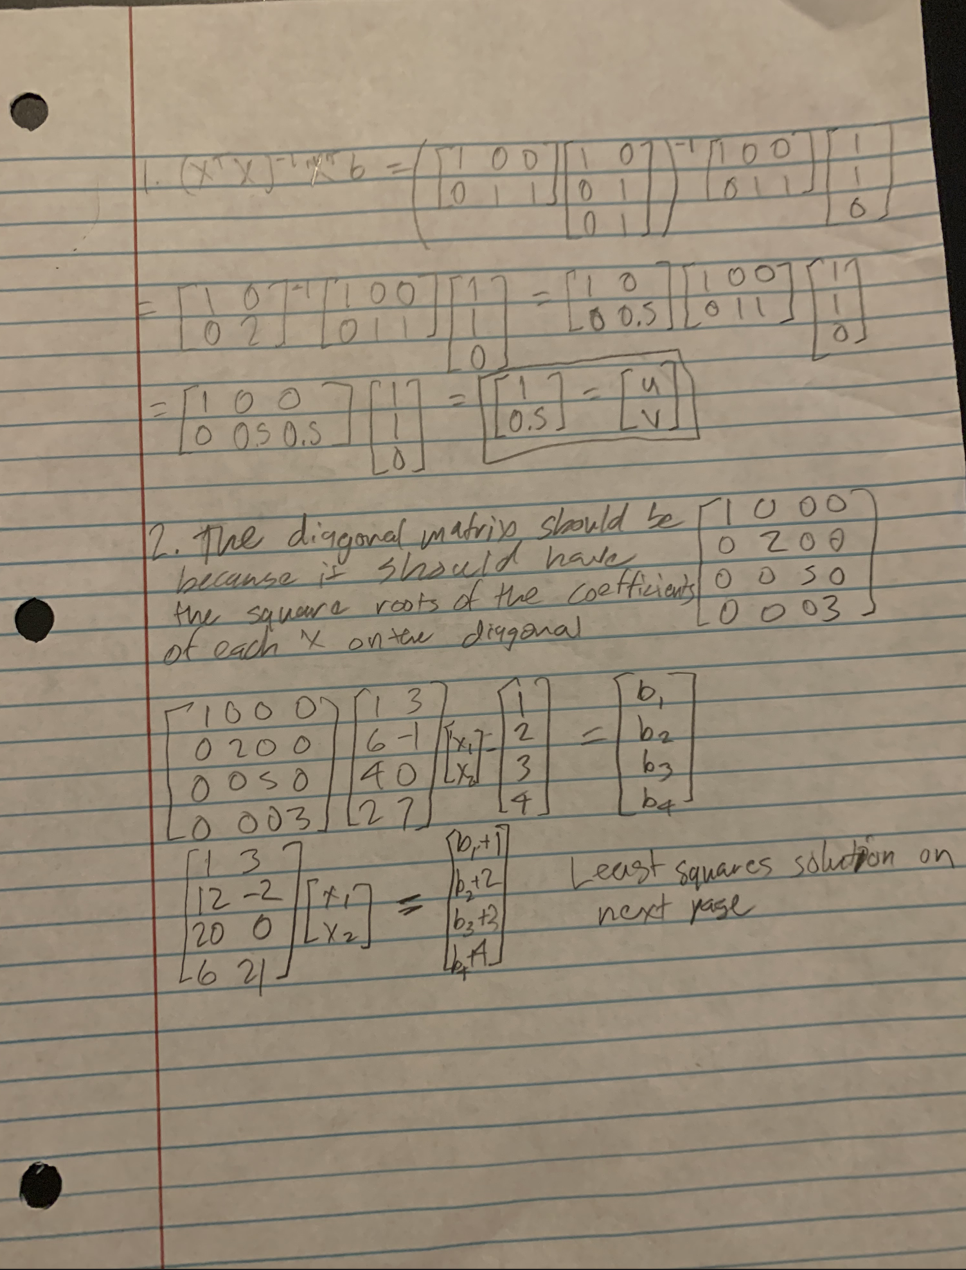 1. (X^T X)^-1 X^T b = ([1 0 0; 0 1 1] [1 0; 0 1; 0 1])^-1 [1 0 0; 0 1 1] [1; 1; 0]
= [1 0; 0 2]^-1 [1 0 0; 0 1 1] [1; 1; 0] = [1 0; 0 0.5] [1 0 0; 0 1 1] [1; 1; 0]
= [1 0 0; 0 0.5 0.5] [1; 1; 0] = [1; 0.5] = [u; v]
2. The diagonal matrix should be [1 0 0 0; 0 2 0 0; 0 0 5 0; 0 0 0 3]
because it should have
the square roots of the coefficients
of each x on the diagonal
[1 0 0 0; 0 2 0 0; 0 0 5 0; 0 0 0 3] [1 3; 6 -1; 4 0; 2 7] [x1; x2] - [1; 2; 3; 4] = [b1; b2; b3; b4]
[1 3; 12 -2; 20 0; 6 21] [x1; x2] = [b1+1; b2+2; b3+3; b4+4]
Least squares solution on
next page